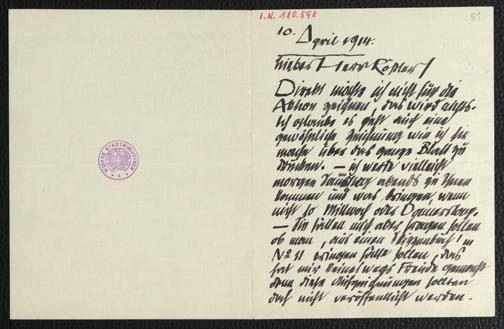 I.N. 180.598
51
10. April 1914.
Lieber Herr Roessler!
Direkt möchte ich nicht für die
Aktion zeichnen, das wird nichts.
Ich glaube es geht auch eine
gewöhnliche Zeichnung wie ich sie
mache über das ganze Blatt zu
drucken. – ich werde vielleicht
morgen Samstag abends zu Ihnen
kommen und was bringen, wenn
nicht so Mittwoch oder Donnerstag.
– Sie hätten mich aber fragen sollen
ob man, aus einem Skizzenbuch in
No 11 bringen hätte sollen, das
hat mir keineswegs Freude gemacht
denn diese Aufzeichnungen sollten
doch nicht veröffentlicht werden.
WIENER STADTBIBLIOTHEK